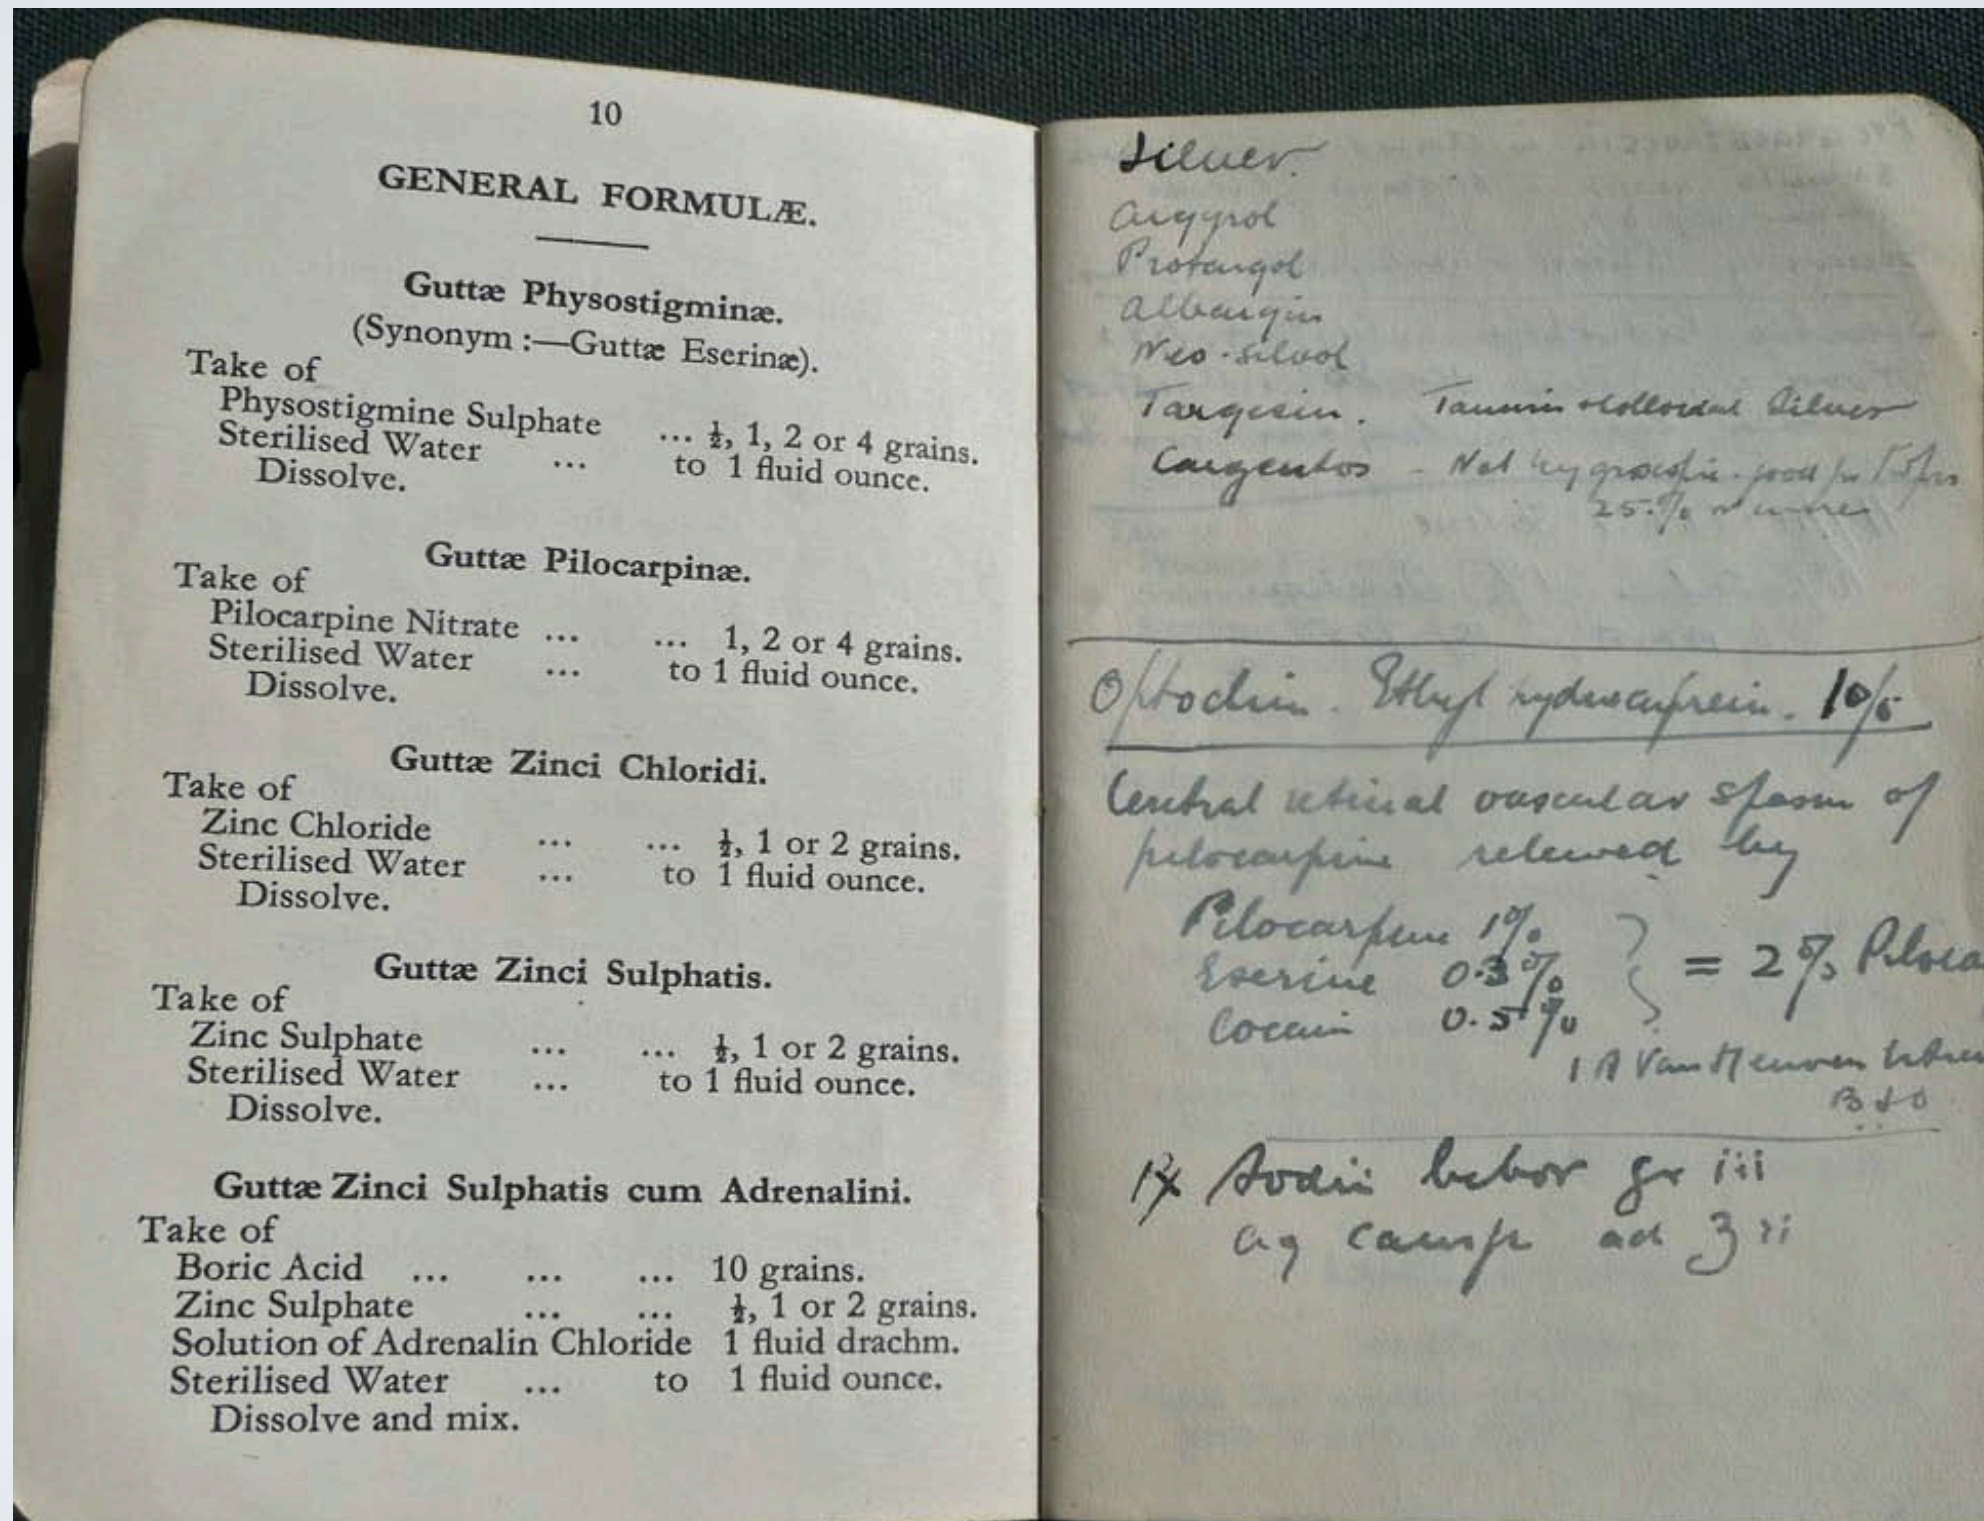 10
GENERAL FORMULÆ.
Guttæ Physostigminæ.
(Synonym :—Guttæ Eserinæ).
Take of
Physostigmine Sulphate ... ½, 1, 2 or 4 grains.
Sterilised Water ... to 1 fluid ounce.
Dissolve.
Guttæ Pilocarpinæ.
Take of
Pilocarpine Nitrate ... ... 1, 2 or 4 grains.
Sterilised Water ... to 1 fluid ounce.
Dissolve.
Guttæ Zinci Chloridi.
Take of
Zinc Chloride ... ... ½, 1 or 2 grains.
Sterilised Water ... to 1 fluid ounce.
Dissolve.
Guttæ Zinci Sulphatis.
Take of
Zinc Sulphate ... ... ½, 1 or 2 grains.
Sterilised Water ... to 1 fluid ounce.
Dissolve.
Guttæ Zinci Sulphatis cum Adrenalini.
Take of
Boric Acid ... ... ... 10 grains.
Zinc Sulphate ... ... ½, 1 or 2 grains.
Solution of Adrenalin Chloride 1 fluid drachm.
Sterilised Water ... to 1 fluid ounce.
Dissolve and mix.
Silver.
Argyrol
Protargol
Albargin
Neo-silvol
Targesin. Tannin Colloidal Silver
Cargentos - Not hygroscopic. good for
25% or more
Optochin. Ethyl hydrocuprein. 1%
Central retinal vascular spasm of
pilocarpine relieved by
Pilocarpine 1%
Eserine 0.3% = 2% Piloca
Cocain 0.5%
Van Heuven
℞ Sodii bibor gr iii
aq camph ad ʒ ii